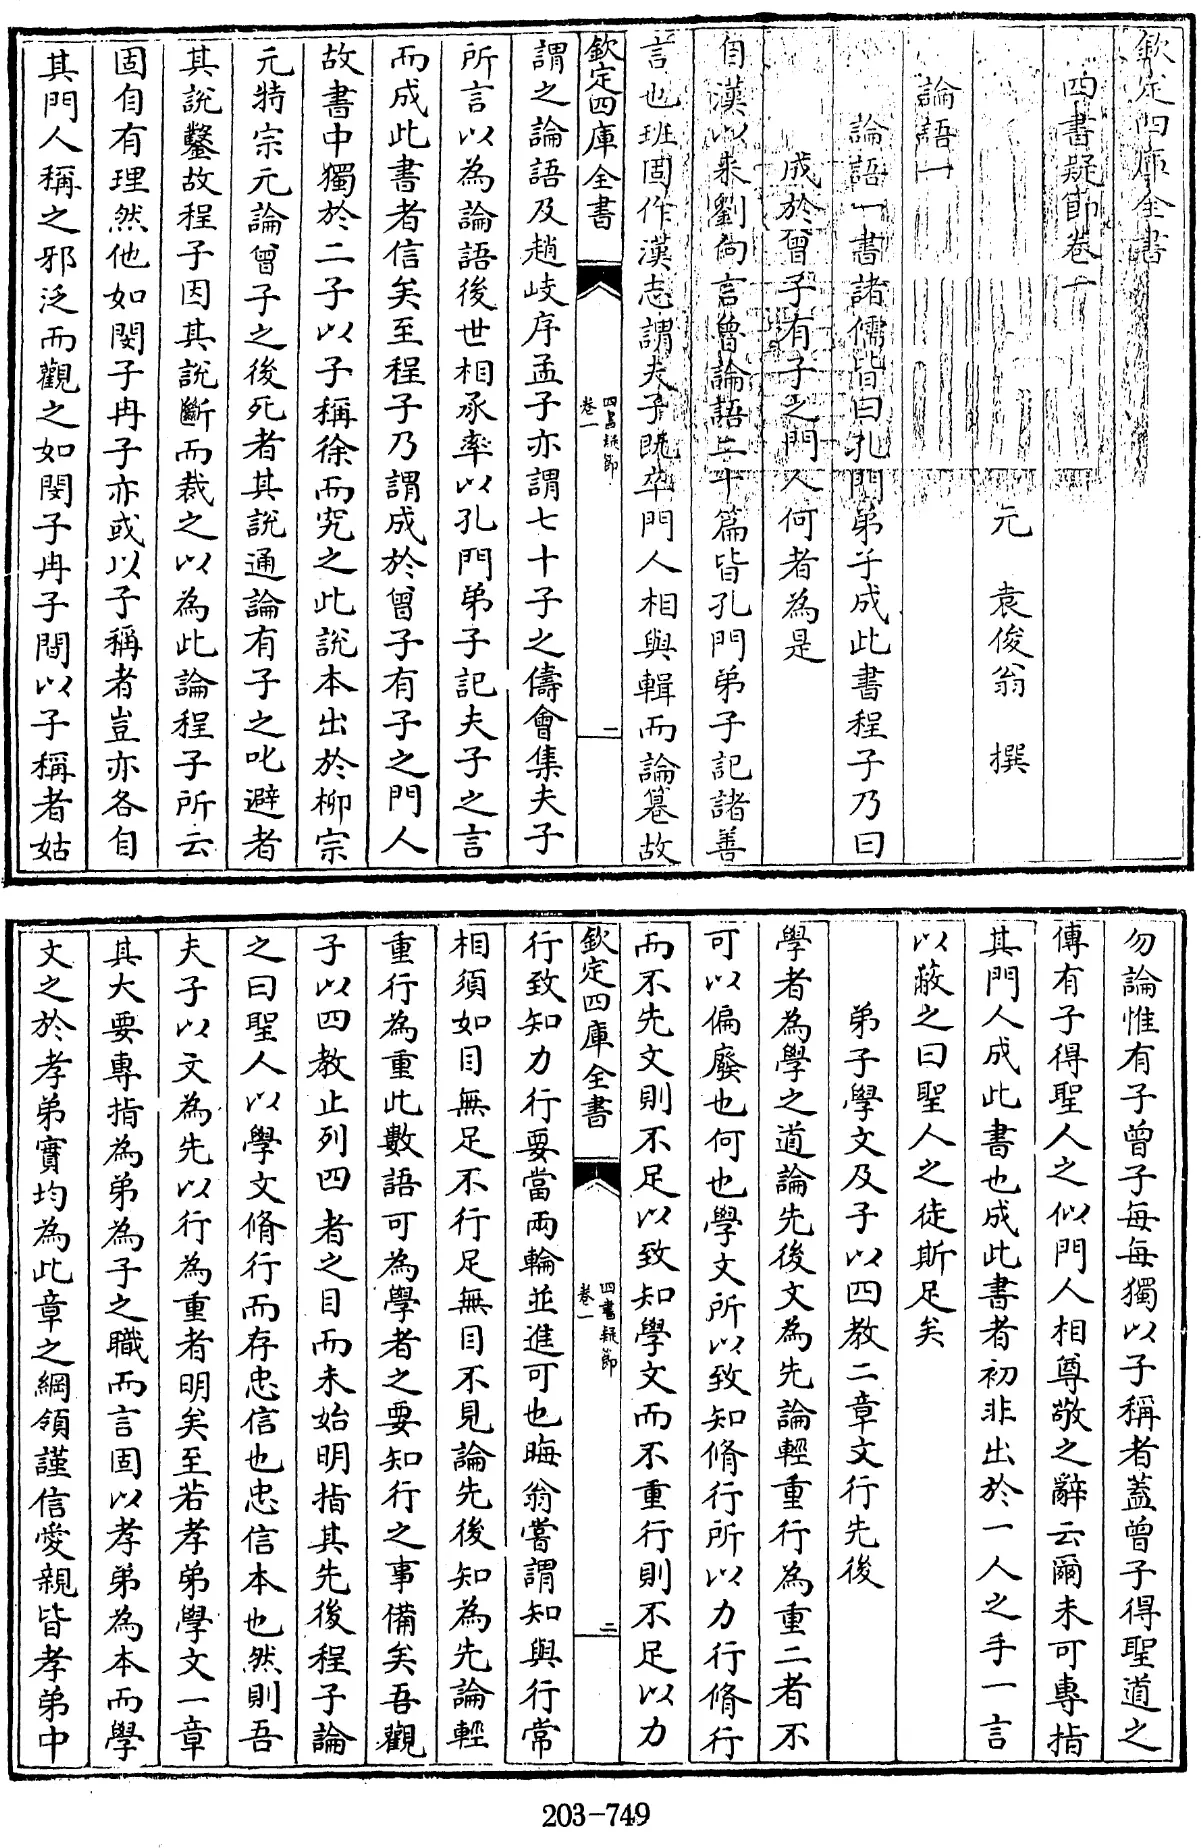 欽定四庫全書
四書疑節卷一
元 袁俊翁 撰
論語一
論語一書諸儒皆曰孔門弟子成此書程子乃曰
成於曾子有子之門人何者為是
自漢以來劉向言魯論語二十篇皆孔門弟子記諸善
言也班固作漢志謂夫子既卒門人相與輯而論篹故
欽定四庫全書
四書疑節
卷一
一
謂之論語及趙岐序孟子亦謂七十子之儔會集夫子
所言以為論語後世相承率以孔門弟子記夫子之言
而成此書者信矣至程子乃謂成於曾子有子之門人
故書中獨於二子以子稱徐而究之此說本出於柳宗
元特宗元論曾子之後死者其說通論有子之叱避者
其說鑿故程子因其說斷而裁之以為此論程子所云
固自有理然他如閔子冉子亦或以子稱者豈亦各自
其門人稱之邪泛而觀之如閔子冉子間以子稱者姑
勿論惟有子曾子每每獨以子稱者蓋曾子得聖道之
傳有子得聖人之似門人相尊敬之辭云爾未可專指
其門人成此書也成此書者初非出於一人之手一言
以蔽之曰聖人之徒斯足矣
弟子學文及子以四教二章文行先後
學者為學之道論先後文為先論輕重行為重二者不
可以偏廢也何也學文所以致知脩行所以力行脩行
而不先文則不足以致知學文而不重行則不足以力
欽定四庫全書
四書疑節
卷一
二
行致知力行要當兩輪並進可也晦翁嘗謂知與行常
相須如目無足不行足無目不見論先後知為先論輕
重行為重此數語可為學者之要知行之事備矣吾觀
子以四教止列四者之目而未始明指其先後程子論
之曰聖人以學文脩行而存忠信也忠信本也然則吾
夫子以文為先以行為重者明矣至若孝弟學文一章
其大要專指為弟為子之職而言固以孝弟為本而學
文之於孝弟實均為此章之綱領謹信愛親皆孝弟中
203-749